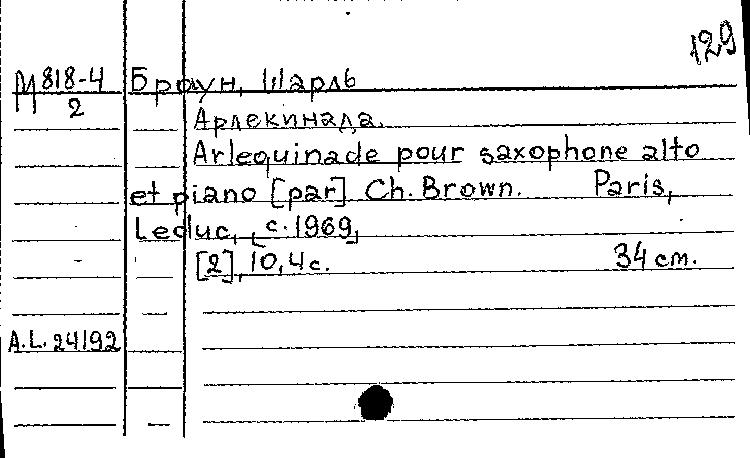 129
М 818-4 Браун, Шарль
2
Арлекинада.
Arlequinade pour saxophone alto
et piano [par] Ch. Brown. Paris,
Leduc, [c. 1969]
[2], 10, 4 с. 34 см.
A.L. 24192